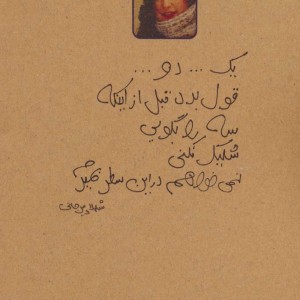 یک ... دو ...
قول بده قبل از اینکه
سه را بگویی
شلیک نکنی
نمی خواهم در این سطر بمیرم